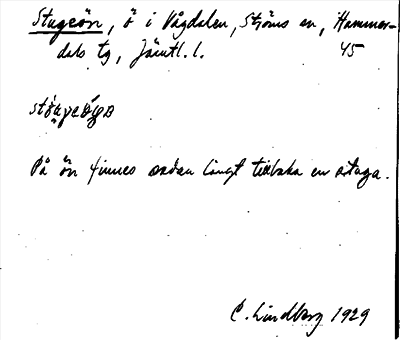 Stugeön, ö i Vågdalen, Ströms sn, Hammer-
dals tg, Jämtl. l. 45
På ön finnes sedan långt tillbaka en stuga.
C. Lindberg 1929